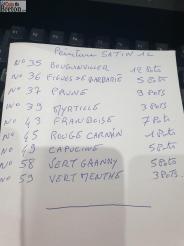 Peinture SATIN 1L
No 35 BOUGAINVILLIER 12 Pots
No 36 FIGUES DE BARBARIE 5 Pots
No 37 PRUNE 9 Pots
No 39 MYRTILLE 3 Pots
No 43 FRAMBOISE 7 Pots
No 45 ROUGE CARMIN 1 Pots
No 49 CAPUCINE 5 Pots
No 58 VERT GRANNY 5 Pots
No 59 VERT MENTHE 3 Pots.